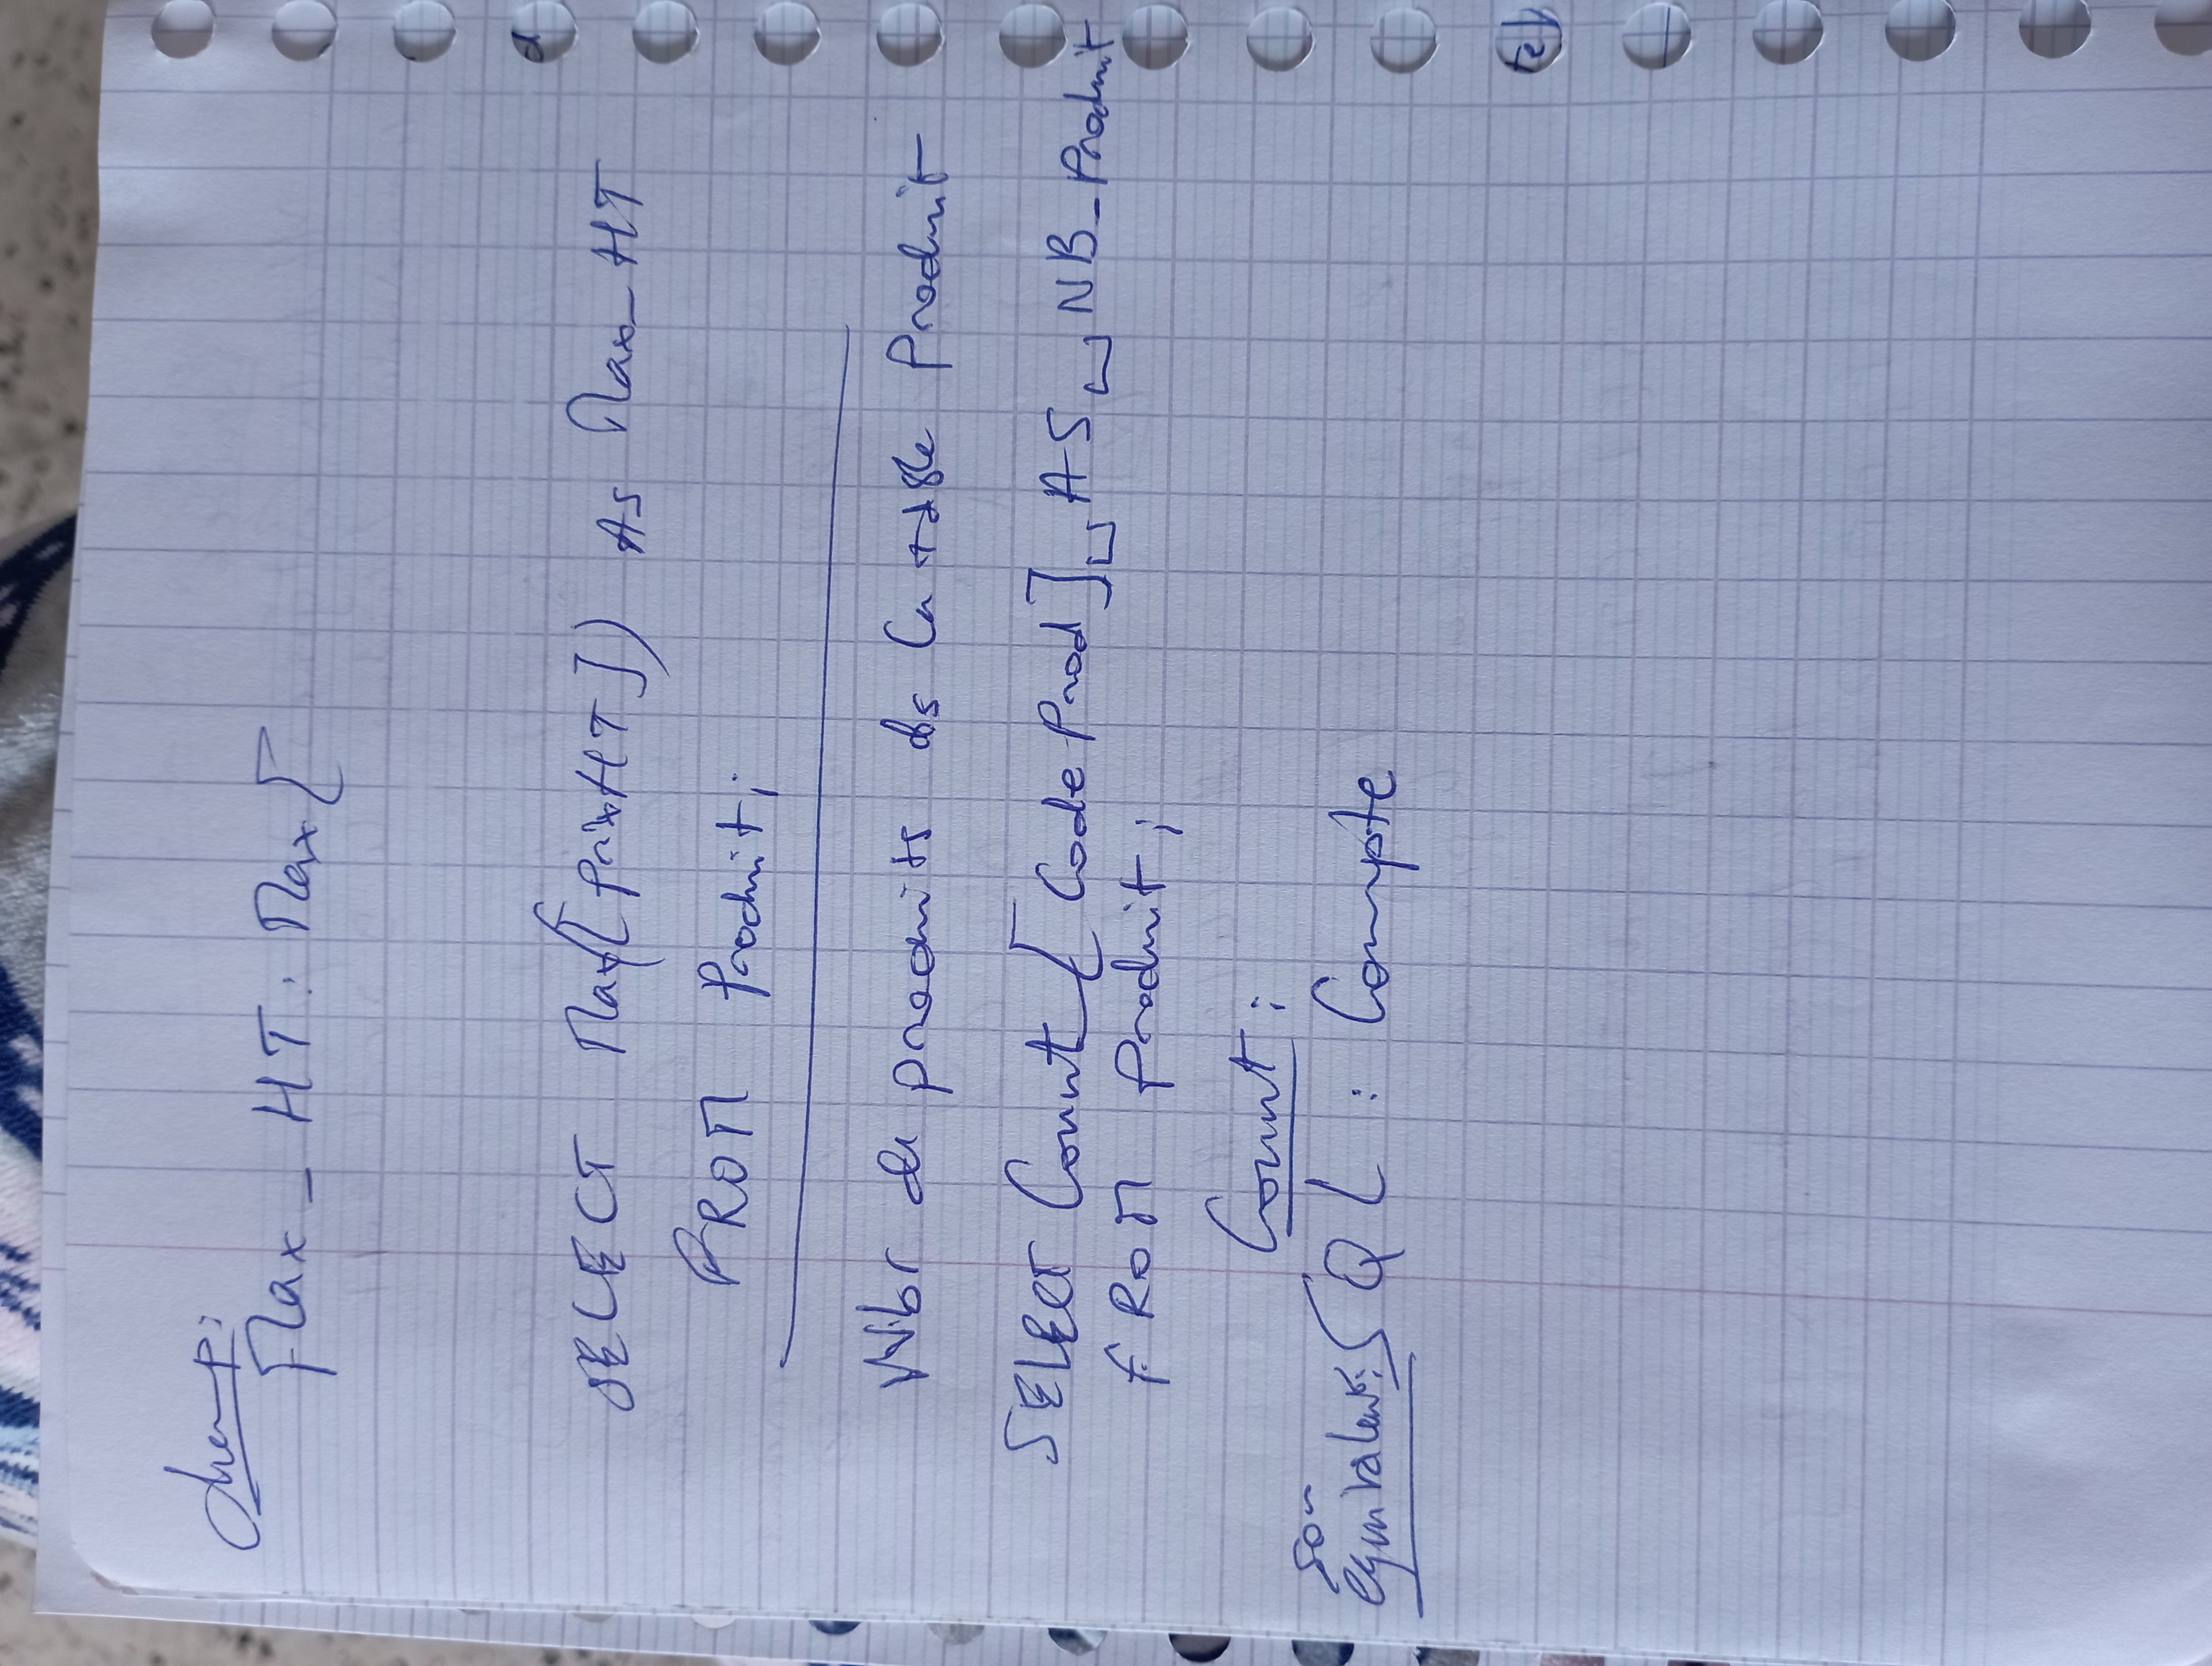 champ:
Max_HT: Max[
SELECT Max([PrixHT]) AS Max_HT
FROM Produit;
Nbr de produits ds la table Produit
SELECT Count [Code Prod]␣AS␣NB_Produit
FROM Produit;
Count:
son
equivalent: SQL : Compte
d
te